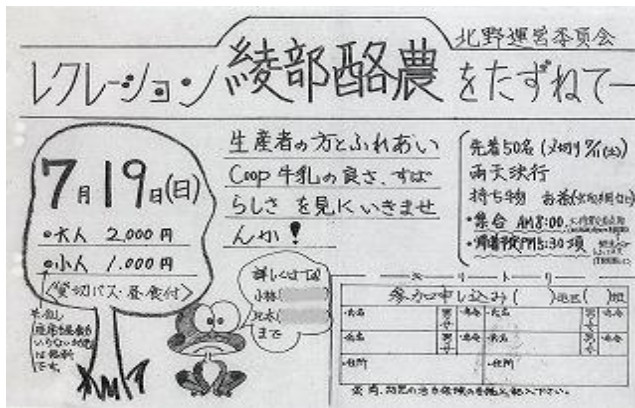 北野運営委員会
レクレーション 綾部酪農 をたずねてー
7月19日(日)
•大人 2,000円
•小人 1,000円
(貸切バス・昼食付)
生産者の方とふれあい
Coop 牛乳の良さ、すば
らしさ を見にいきませ
んか!
先着50名(〆切り 7/11(土)
雨天決行
持ち物 お茶
•集合 AM8:00
PM5:30頃
詳しくは
小林(
まで
キリトリ
参加申し込み( )地区( )班
•氏名 男 女 •年令 •氏名 男 女 •年令
•氏名 男 女 •年令 •氏名 男 女 •年令
•住所 •住所